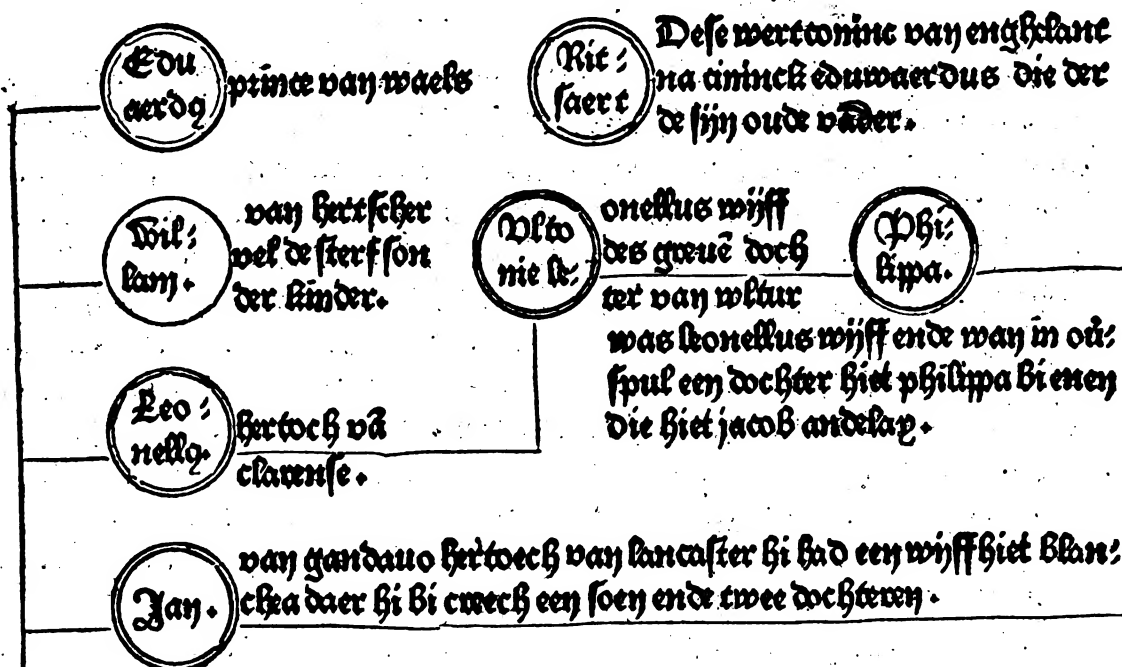 Edu
aerdꝯ
prince van waels
Rit:
saert
Dese wert coninc van enghelant
na coninck eduwaerdus die der
de sijn oude vader.
Wil:
lam.
van hertscher
vel de sterf son
der kinder.
Vlto
nie le:
onellus wijff
des greuē doch
ter van wltur
was leonellus wijff ende wan in ou:
spul een dochter hiet philippa bi enen
die hiet jacob andelay.
Phi:
lippa.
Leo:
nellꝯ.
hertoch vā
clarense.
Jan.
van gandauo hertoech van lancaster hi had een wijff hiet blan:
chea daer hi bi creech een soen ende twee dochteren.